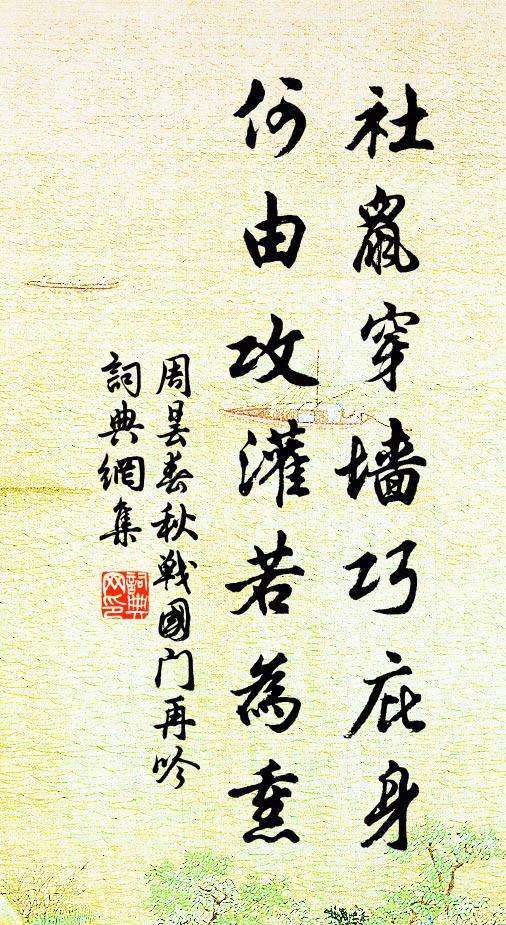 社鼠穿墙巧庇身
何由攻灌若為熏
周曇春秋戰國门再吟
詞典網集
詞典网印